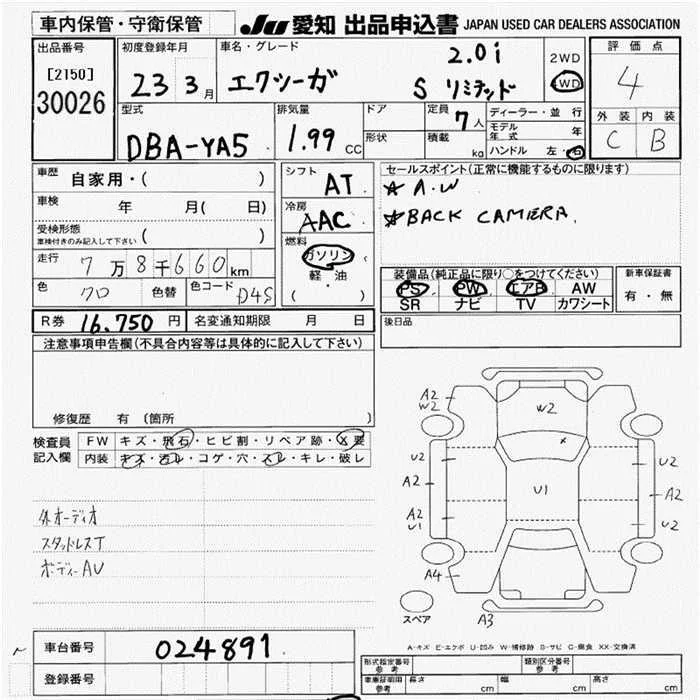 車内保管・守衛保管 JU 愛知 出品申込書 JAPAN USED CAR DEALERS ASSOCIATION
出品番号
[2150]
30026
初度登録年月
23 3月
車名・グレード
エクシーガ
2.0i
S リミテッド
2WD
4WD
評価点
4
外装 内装
C B
型式
DBA-YA5
排気量
1.99 CC
ドア
形状
定員 7人
積載 kg
ディーラー・並行
モデル年式 年
ハンドル 左・右
車歴 自家用・( )
車検 年 月( 日)
受検形態
車検付きのみ記入して下さい ( )
走行 7万8千660km
色 クロ 色替 色コード D4S
シフト AT
冷房 AAC
燃料
ガソリン
軽・油
( )
セールスポイント(正常に機能するものに限ります)
★A.W
★BACK CAMERA.
装備品(純正品に限り○をつけてください)
PS PW エアB AW
SR ナビ TV カワシート
新車保証書
有・無
R券 16.750円 名変通知期限 月 日
後日品
注意事項申告欄(不具合内容等は具体的に記入して下さい)
修復歴 有 〔箇所 〕
検査員
記入欄
FW キズ・飛石・ヒビ割・リペア跡・X要
内装 キズ・汚レ・コゲ・穴・スレ・キレ・破レ
外オーディオ
スタッドレスT
ボディーAU
A2
W2
W2
U2
U2
A2
U1
A2
A2
U1
U2
A4
A3
スペア
A-キズ E-エクボ U-凹み W-補修跡 S-サビ C-腐食 XX-交換済
車台番号 024891
登録番号
型式指定番号
参考
類別区分番号
参考
車庫証明用
参考
長さ cm 幅 cm 高さ cm